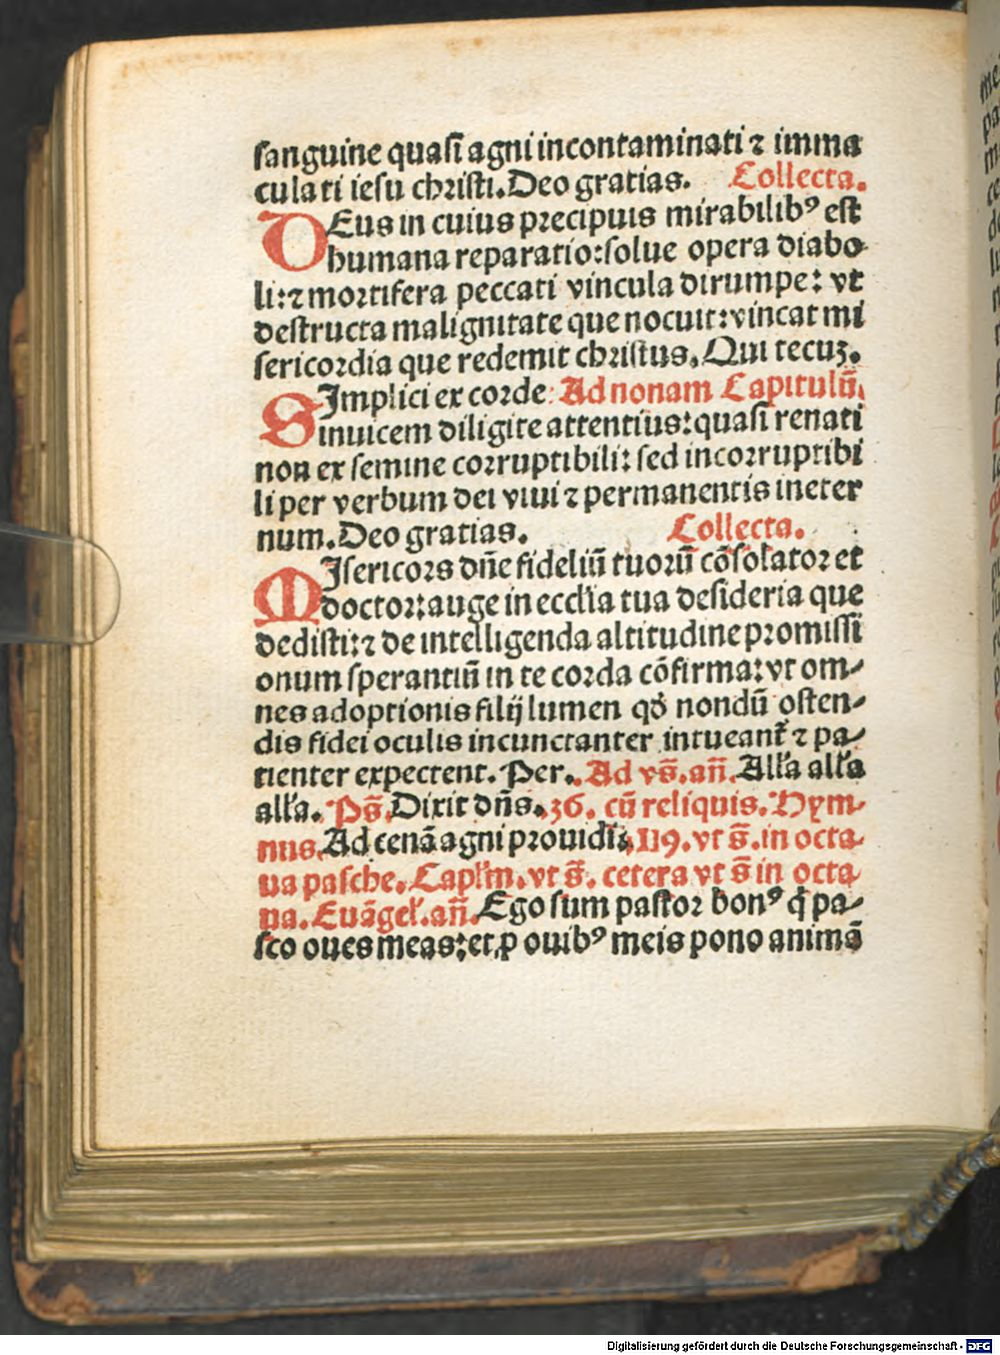 sanguine quasi agni incontaminati ⁊ imma
culati iesu christi. Deo gratias. Collecta.
DEus in cuius precipuis mirabilibꝰ est
humana reparatio: solue opera diabo
li: ⁊ mortifera peccati vincula dirumpe: vt
destructa malignitate que nocuit: vincat mi
sericordia que redemit christus. Qui tecuꝫ.
SImplici ex corde Ad nonam Capitulū.
inuicem diligite attentius: quasi renati
non ex semine corruptibili: sed incorruptibi
li per verbum dei viui ⁊ permanentis in eter
num. Deo gratias. Collecta.
MIsericors dn̄e fideliū tuorū cōsolator et
doctor: auge in eccl̄ia tua desideria que
dedisti: ⁊ de intelligenda altitudine promissi
onum sperantiū in te corda cōfirma: vt om-
nes adoptionis filij lumen qđ nondū osten-
dis fidei oculis incunctanter intueant᷑ ⁊ pa-
tienter expectent. Per. Ad vs̄. an̄. Alľa alľa
alľa. Ps̄. Dixit dn̄s. 36. cū reliquis. Hym-
nus. Ad cenā agni prouidi. 119. vt s̄. in octa-
ua pasche. Capľm. vt s̄. cetera vt s̄ in octa-
ua. Euāgeľ. an̄. Ego sum pastor bonꝰ q̄ pa-
sco oues meas: et ꝓ ouibꝰ meis pono animā
Digitalisierung gefördert durch die Deutsche Forschungsgemeinschaft - DFG